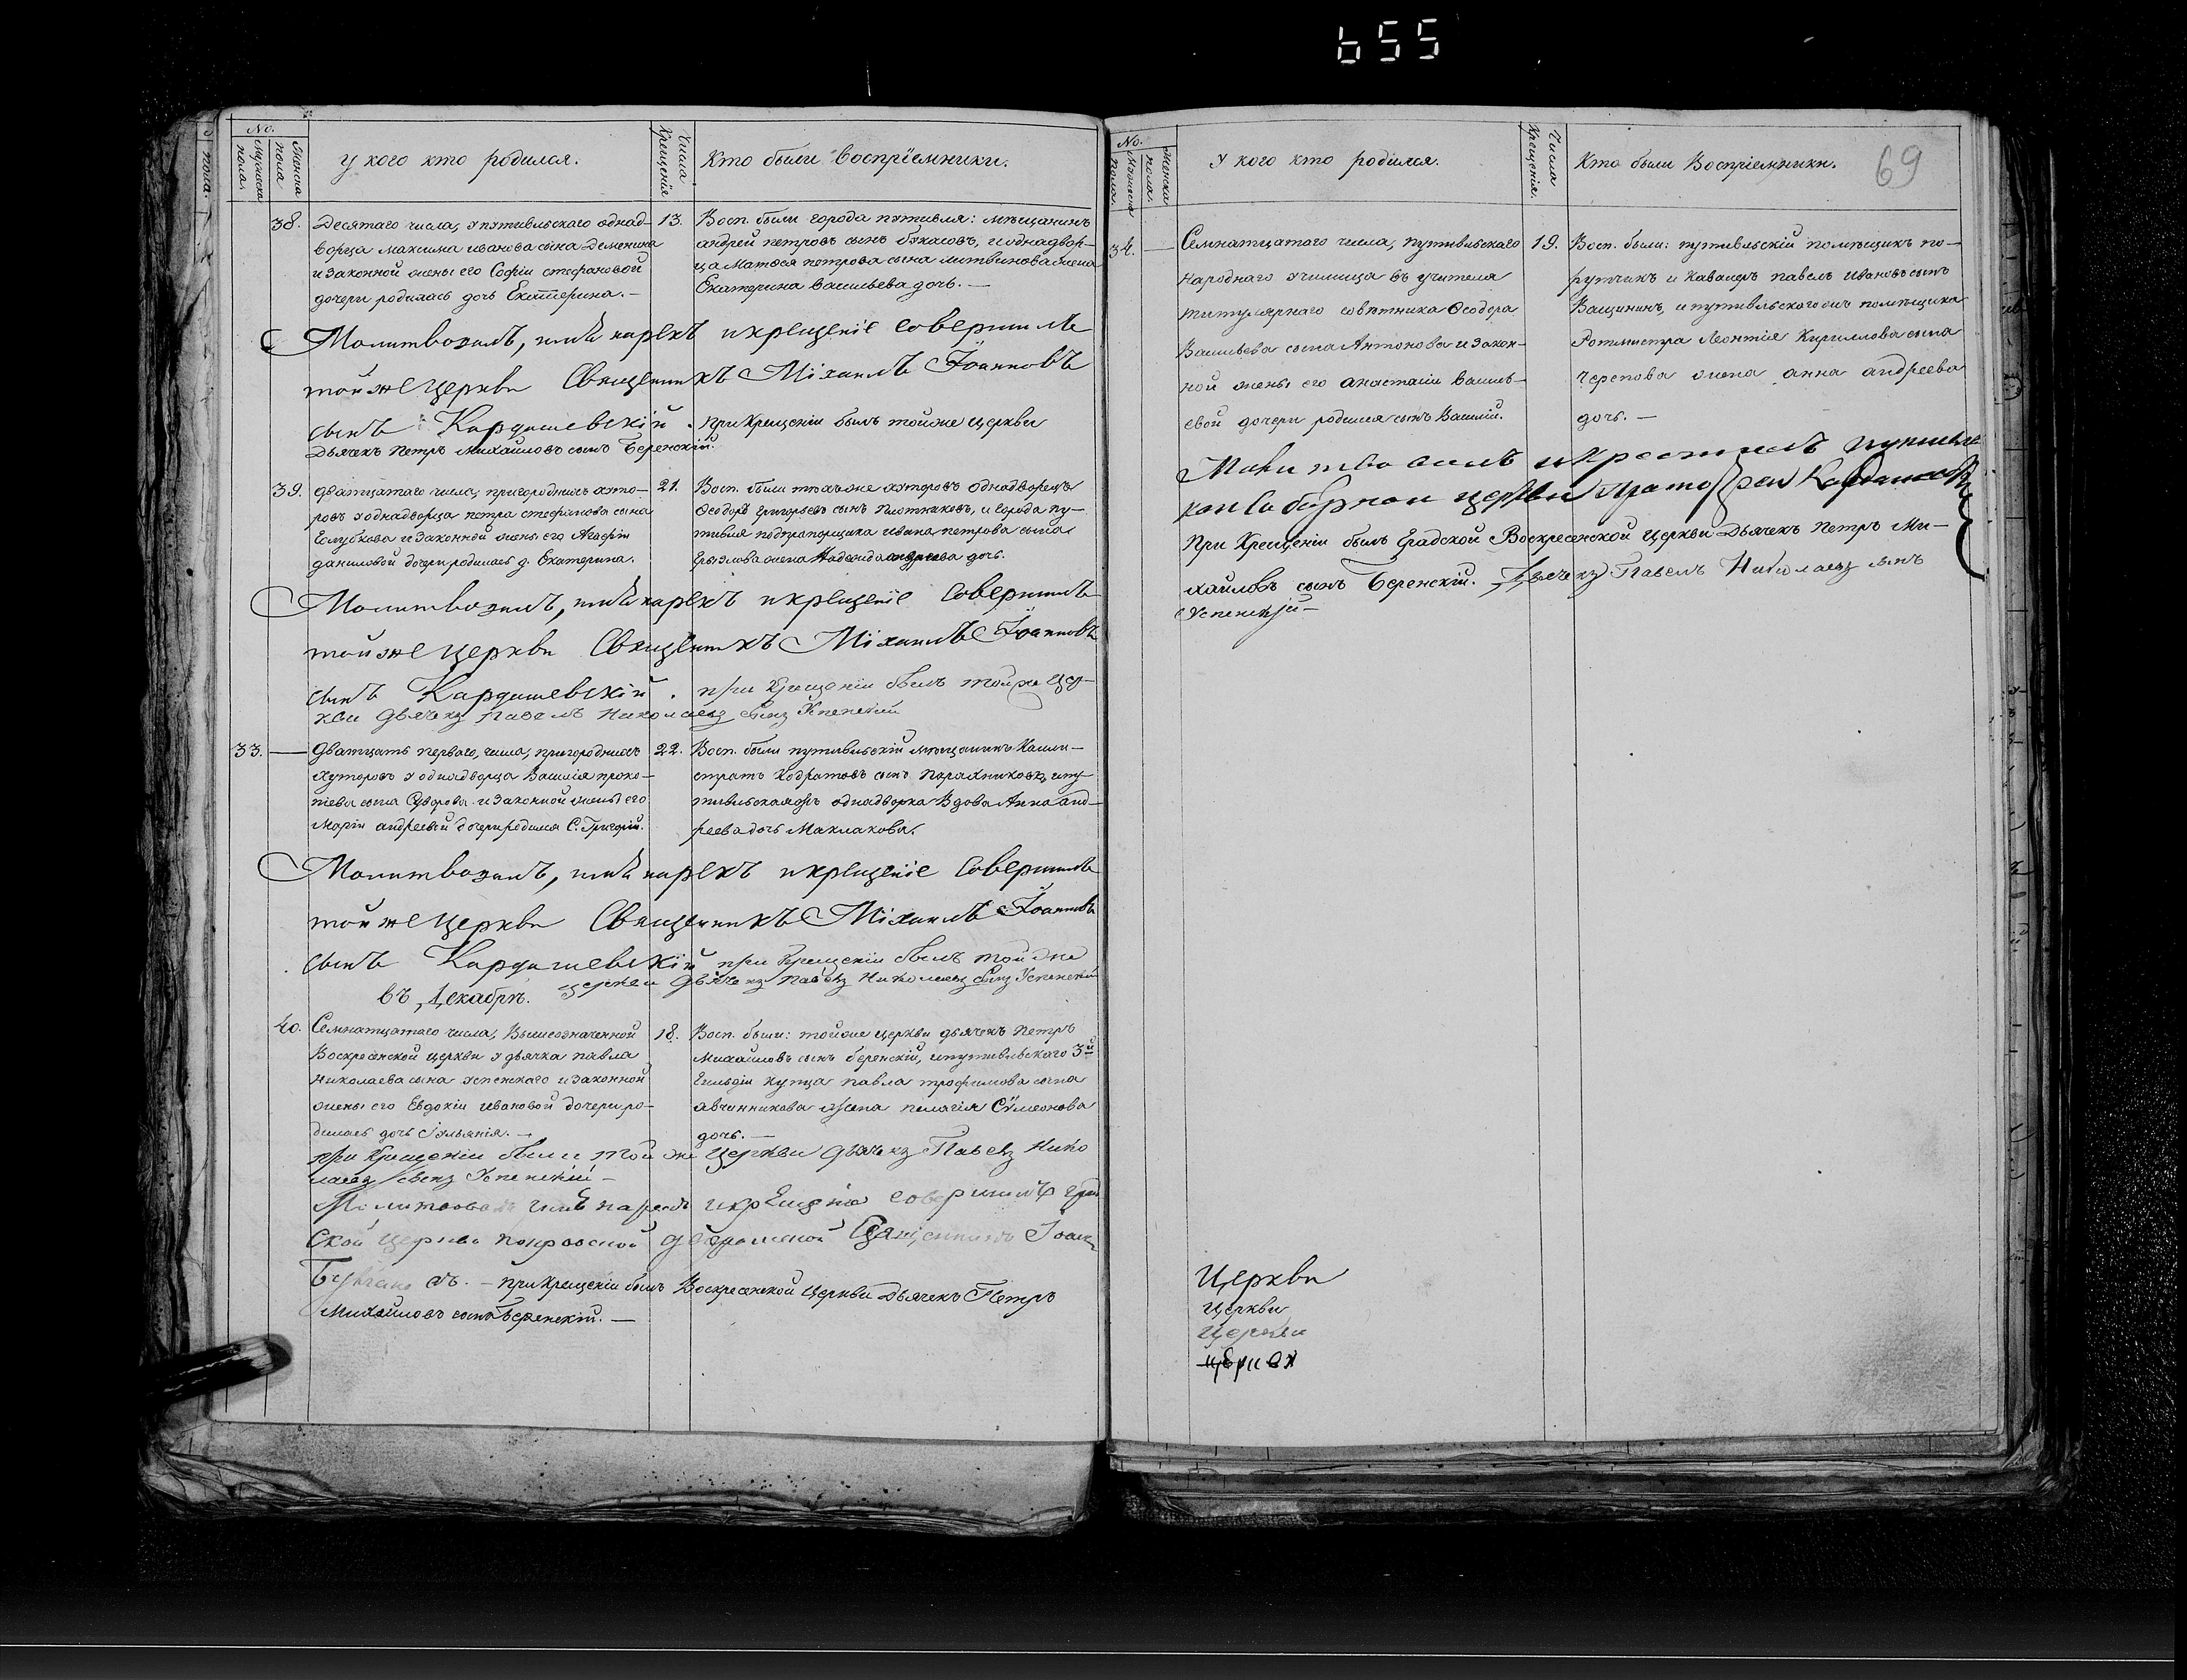 655
No.
Мужеска пола.
Женска пола
У кого кто родился.
Числа Крещенїе
Кто были восприемники.
38.
Десятаго числа, у путивльскаго однад-
ворца Максима иванова сына Деменина
и законной жены его Софїи стефановой
дочери родилась дочь Екатерина. —
13.
Восп. были города путивля: мещанинъ
андрей петровъ сынъ бѫкасовъ, и однадвор-
ца Матѳея петрова сына литвинова жена
Екатерина васильева дочь. —
Молитвовалъ, имя нарекъ и крещенїе совершилъ
той же церкви Священникъ Мїхаилъ Їоанновъ
сынъ Кардашевскїй. при Крещенїи былъ той же церкви
Дьячекъ Петръ Михаиловъ сынъ Беренскїй.
39.
дватцатаго числа, пригороднихъ хуто-
ровъ у однадворца петра стефанова сына
Голубкова и законной жены его Агафїи
даниловой дочери родилась д. Екатерина.
21.
Восп. были техъ же хуторовъ однадворецъ
Ѳеодоръ григорьевъ сынъ Плотниковъ, и города пу-
тивля подпрапорщика ивана петрова сына
жена Надежда андреева дочь.
Молитвовалъ, имя нарекъ и крещенїе совершилъ
той же церкви Священникъ Мїхаилъ Їоанновъ
сынъ Кардашевскїй. при крещенїи былъ той же цер-
кви дьячекъ павелъ николаевъ сынъ Успенский
33.
Дватцать перваго, числа, пригороднихъ
хуторовъ у однадворца Василїя проко-
пїева сына Суворова и законной жены его
Марїи андреевой дочери родился С. Григорїй.
22.
Восп. были путивльскїй мещанинъ Калли-
стратъ Кодратовъ сынъ пораxниковъ, и пу-
тивльская однадворка вдова Анна анд-
реева дочь Маклакова.
Молитвовалъ, имя нарекъ и крещенїе совершилъ
той же церкви Священникъ Мїхаилъ Їоанновъ
сынъ Кардашевскїй при крещенїи былъ той же
церкви дьячекъ павелъ Николаевъ сынъ Успенский
въ Декабре.
40.
Семнатцатаго числа, Вышеозначенной
Воскресенской церкви у дьячка павла
Николаева сына успенскаго и законной
жены его Евдокїи ивановой дочери ро-
дилась дочь Їульянїя. —
18.
Восп. были: той же церкви дьячекъ петръ
Михаиловъ сынъ беренскїй, и путивльскаго 3й
Гильдїи купца павла трофимова сына
авчинникова жена пелагїя Сѵмеонова
дочь. —
при крещенїи были той же церкви дьячекъ Павелъ Нико
лаевъ сынъ Успенский —
Молитвовалъ имя нарекъ и крещенїе совершилъ град
ской церкви покровской Священникъ Їоаннъ
— при крещенїи былъ Воскресенской церкви Дьячекъ Петръ
Михаиловъ сынъ Беренскїй. —
No.
Мужеска пола.
Женска пола.
У кого кто родился.
Числа Крещенїя.
Кто были Восприемники.
69
34. —
Семнатцатаго числа, путивльскаго
народнаго училища въ учителя
титулярнаго советника Ѳеодора
Васильева сына Антонова и закон-
ной жены его анастасїи василь-
евой дочери родился сынъ Василїй.
19.
Восп. были: путивльскїй помещикъ по-
рутчикъ и Кавалеръ павелъ ивановъ сынъ
Ващининъ, и путивльскаго помещика
Ротмистра Леонтїя Кириллова сына
Черепова жена анна андреева
дочь. —
Молитвовалъ и крестилъ путивль
кои соборнои церкви Кардашевскїй
при Крещенїи былъ Градской Воскресенской церкви Дьячекъ петръ Ми-
хайловъ сынъ Беренскїй. Дьячекъ Павелъ Николаевъ сынъ
Успенский —
Церкви
Церкви
Церкви